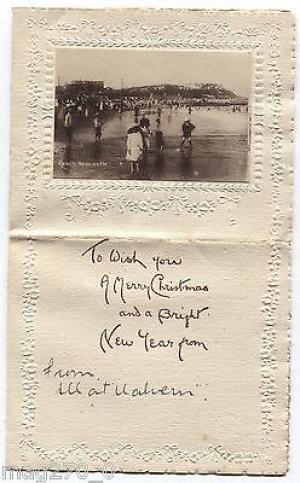 Beach, Newcastle
To Wish you
A Merry Christmas
and a Bright
New Year from
from
All at Malvern
mag270_0